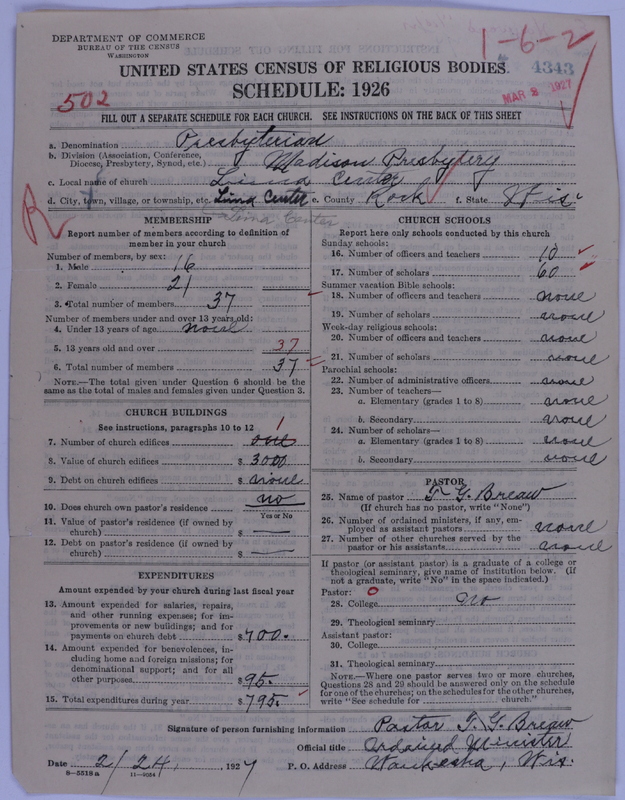 DEPARTMENT OF COMMERCE
BUREAU OF THE CENSUS
WASHINGTON
1-6-2
4343
MAR 8 1927
UNITED STATES CENSUS OF RELIGIOUS BODIES
502
SCHEDULE: 1926
FILL OUT A SEPARATE SCHEDULE FOR EACH CHURCH. SEE INSTRUCTIONS ON THE BACK OF THIS SHEET
a. Denomination Presbyterian
b. Division (Association, Conference, Diocese, Presbytery, Synod, etc.) Madison Presbytery
c. Local name of church Lima Center
d. City, town, village, or township, etc. Lima Center e. County Rock f. State Wis.
Lima Center
R
MEMBERSHIP
Report number of members according to definition of
member in your church
Number of members, by sex:
1. Male 16
2. Female 21
3. Total number of members 37
Number of members under and over 13 years old:
4. Under 13 years of age
5. 13 years old and over 37
6. Total number of members 37
NOTE.—The total given under Question 6 should be the
same as the total of males and females given under Question 3.
CHURCH BUILDINGS
See instructions, paragraphs 10 to 12
7. Number of church edifices one 1
8. Value of church edifices $ 3000
9. Debt on church edifices $ none
10. Does church own pastor's residence no
Yes or No
11. Value of pastor's residence (if owned by
church) $ —
12. Debt on pastor's residence (if owned by
church) $ —
EXPENDITURES
Amount expended by your church during last fiscal year
13. Amount expended for salaries, repairs,
and other running expenses; for im-
provements or new buildings; and for
payments on church debt $ 700.
14. Amount expended for benevolences, in-
cluding home and foreign missions; for
denominational support; and for all
other purposes $ 95.
15. Total expenditures during year $ 795.
CHURCH SCHOOLS
Report here only schools conducted by this church
Sunday schools:
16. Number of officers and teachers 10
17. Number of scholars 60
Summer vacation Bible schools:
18. Number of officers and teachers none
19. Number of scholars none
Week-day religious schools:
20. Number of officers and teachers none
21. Number of scholars none
Parochial schools:
22. Number of administrative officers none
23. Number of teachers—
a. Elementary (grades 1 to 8) none
b. Secondary none
24. Number of scholars—
a. Elementary (grades 1 to 8) none
b. Secondary none
PASTOR
25. Name of pastor T. G. Breaw
(If church has no pastor, write "None")
26. Number of ordained ministers, if any, em-
ployed as assistant pastors none
27. Number of other churches served by the
pastor or his assistants none
If pastor (or assistant pastor) is a graduate of a college or
theological seminary, give name of Institution below. (If
not a graduate, write "No" in the space indicated.)
Pastor: 0
28. College No
29. Theological seminary
Assistant pastor:
30. College
31. Theological seminary
NOTE.—Where one pastor serves two or more churches,
Questions 28 and 29 should be answered only on the schedule
for one of the churches; on the schedules for the other churches,
write "See schedule for church."
Signature of person furnishing information Pastor T. G. Breaw
Official title Ordained Minister
Date 2/24, 1927 P. O. Address Waukesha, Wis.
8-5519a 11-9054